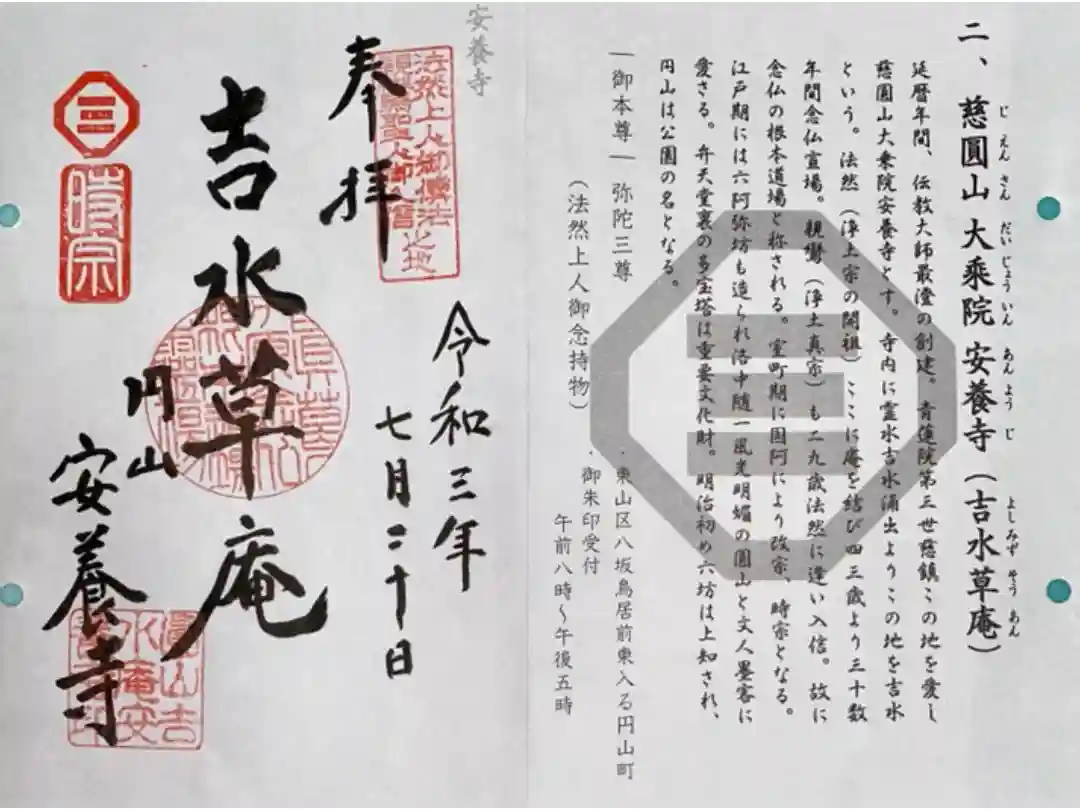 じえんさん だいじょういん あんようじ よしみずそうあん
二、慈圓山 大乘院 安養寺(吉水草庵)
延暦年間、伝教大師最澄の創建。青蓮院第三世慈鎮この地を愛し
慈圓山大乗院安養寺とす。寺内に霊水吉水涌出よりこの地を吉水
という。法然(浄土宗の開祖)ここに庵を結び四三歳より三十数
年間念仏宣場。親鸞(浄土真宗)も二九歳法然に逢い入信。故に
念仏の根本道場と称される。室町期に国阿により改宗、時宗となる。
江戸期には六阿弥坊も造られ洛中随一風光明媚の圓山と文人墨客に
愛さる。弁天堂裏の多宝塔は重要文化財。明治初め六坊は上知され、
円山は公園の名となる。
―御本尊― 弥陀三尊
(法然上人御念持物)
・東山区八坂鳥居前東入る円山町
・御朱印受付
午前八時~午後五時
安養寺
法然上人御傳法
親鸞聖人御
之地
奉拝
令和三年
七月二十日
吉水草庵
円山
安養寺
時宗
圓山吉
水庵安